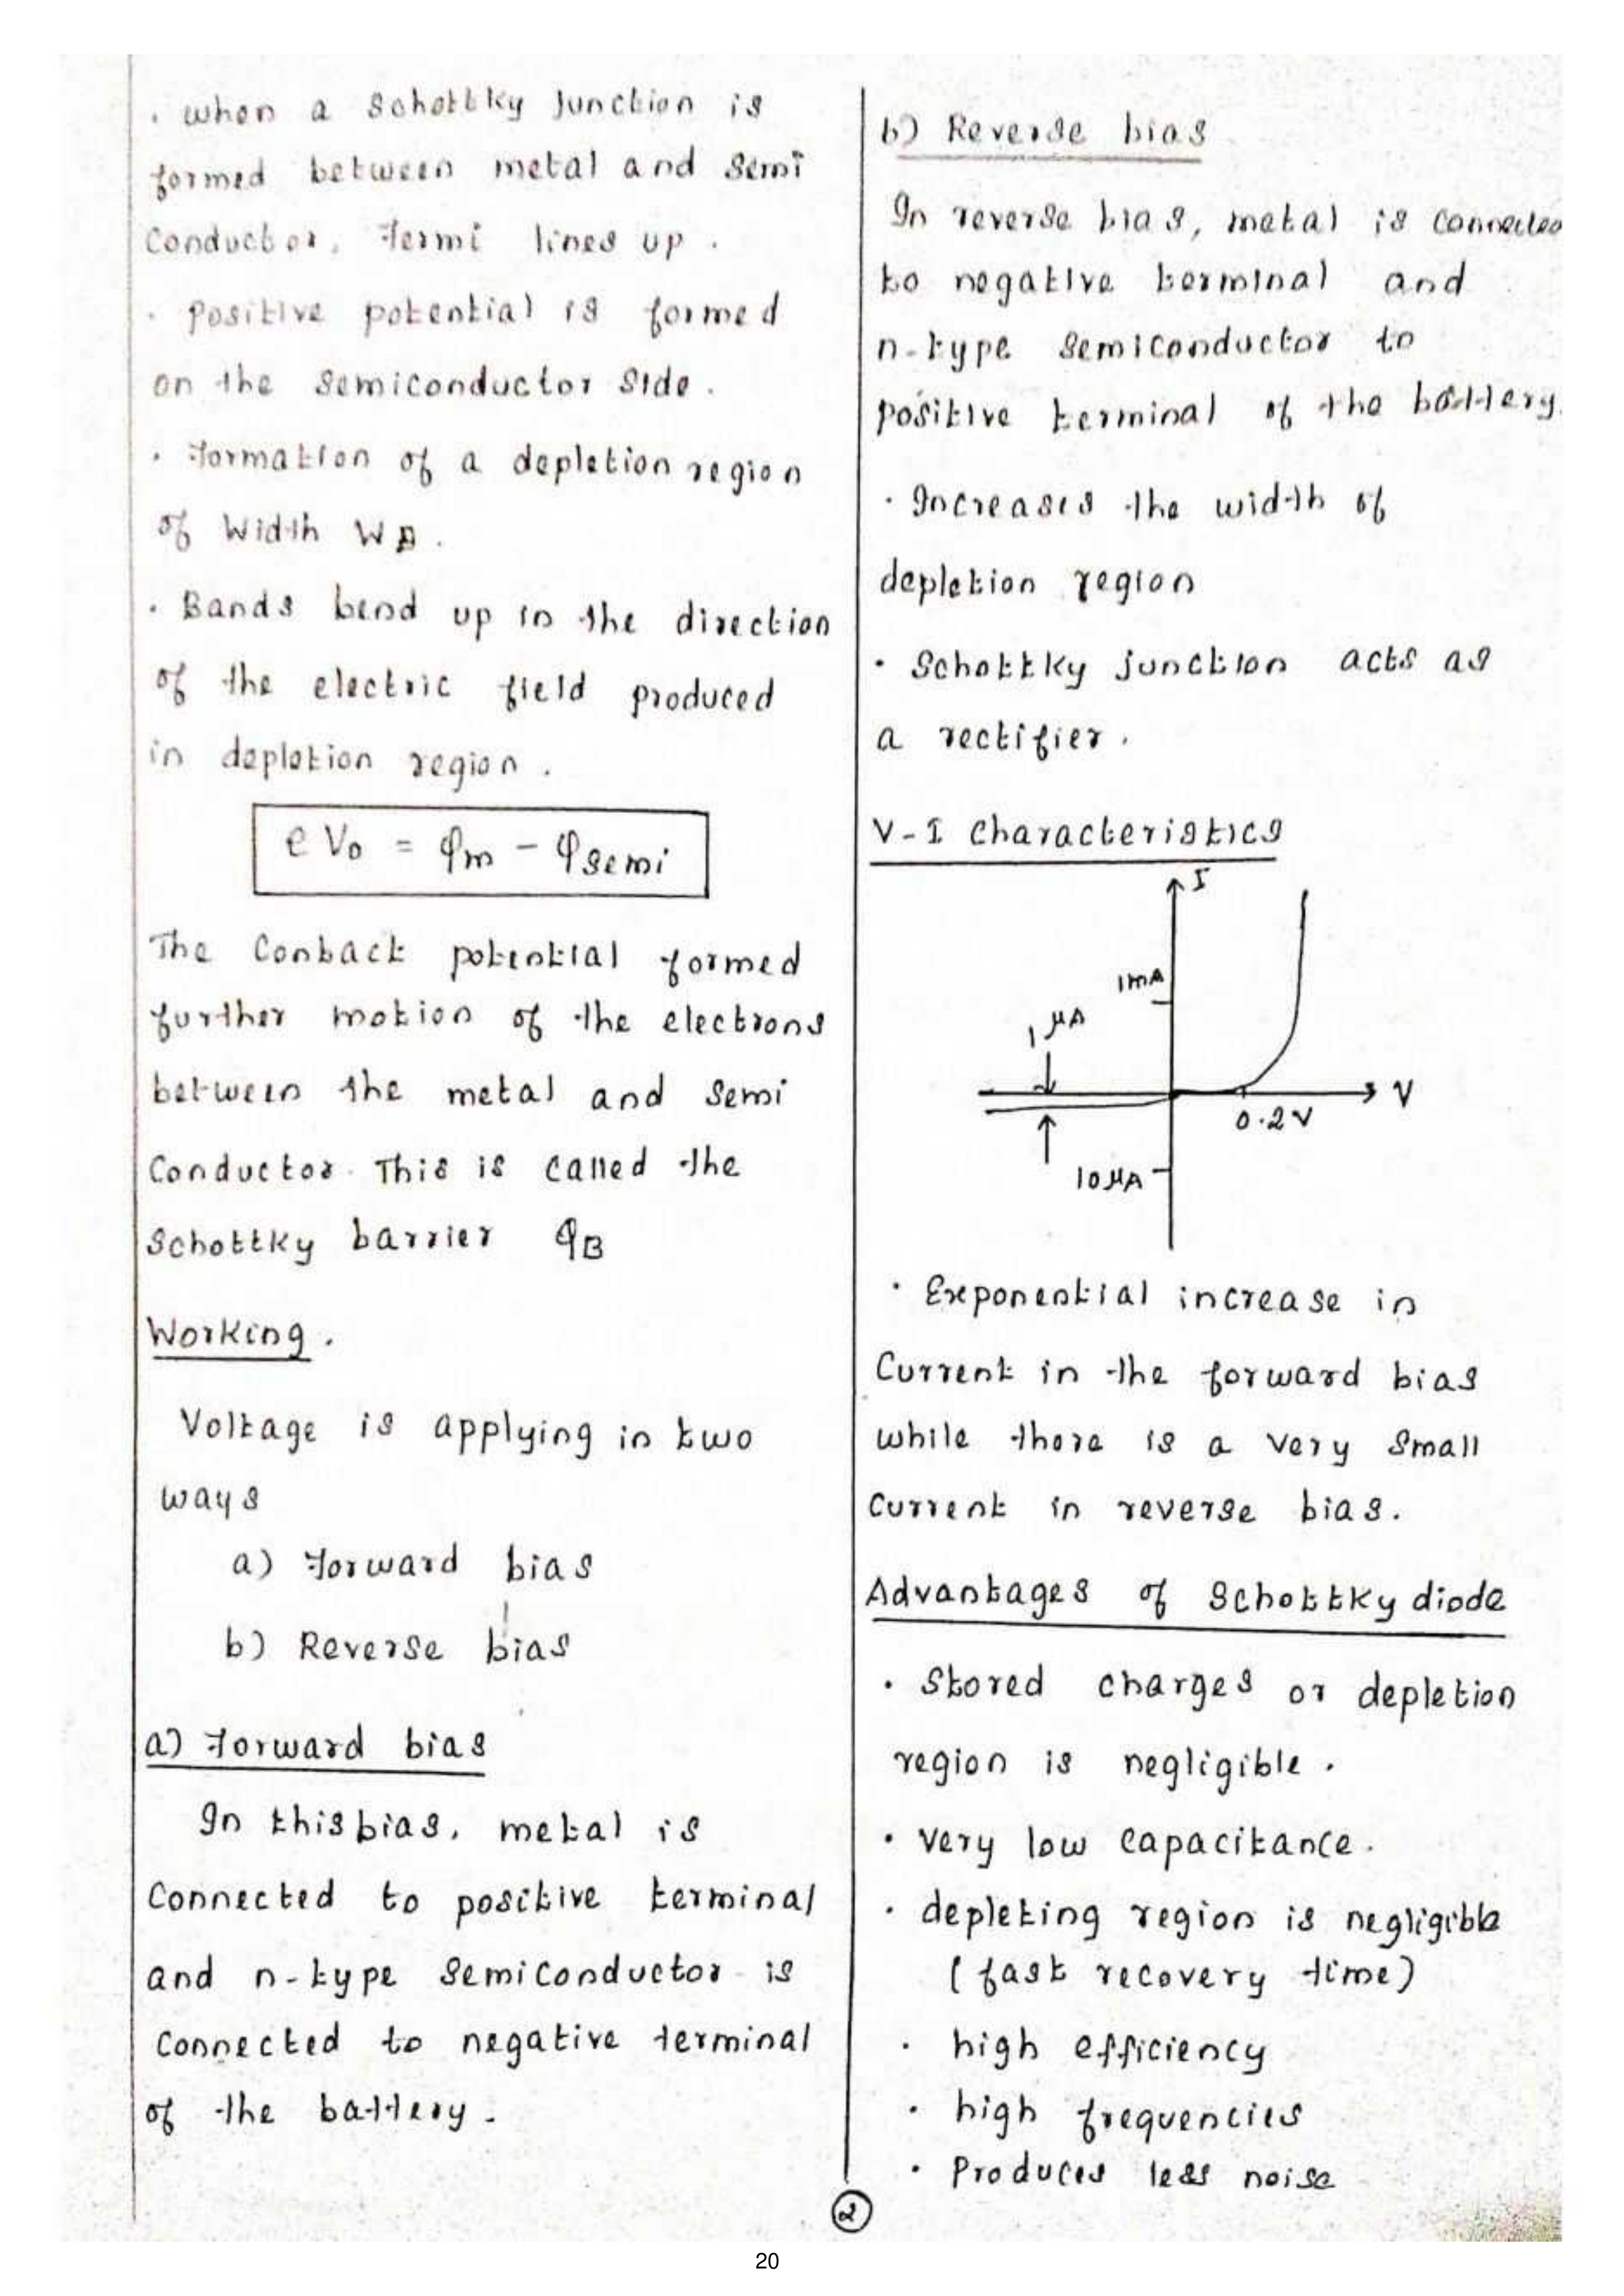 . when a Schottky Junction is
formed between metal and Semi
Conductor, Fermi lines up .
. Positive potential is formed
on the Semiconductor Side .
. Formation of a depletion region
of Width WD .
. Bands bend up in the direction
of the electric field produced
in depletion region .
e V₀ = φm - φsemi
The Contact potential formed
further motion of the electrons
between the metal and Semi
Conductor. This is called the
Schottky barrier φB
Working .
Voltage is applying in two
ways
a) Forward bias
b) Reverse bias
a) Forward bias
In this bias, metal is
Connected to positive terminal
and n-type Semiconductor is
Connected to negative terminal
of the battery .
b) Reverse bias
In reverse bias, metal is connected
to negative terminal and
n-type Semiconductor to
positive terminal of the battery.
. Increases the width of
depletion region
. Schottky junction acts as
a rectifier .
V-I Characteristics
I
1mA
1 μA
V
0.2V
10μA
. Exponential increase in
Current in the forward bias
while there is a very Small
Current in reverse bias.
Advantages of Schottky diode
. Stored charges or depletion
region is negligible .
. Very low capacitance .
. depleting region is negligible
( fast recovery time)
. high efficiency
. high frequencies
. Produces less noise
2
20